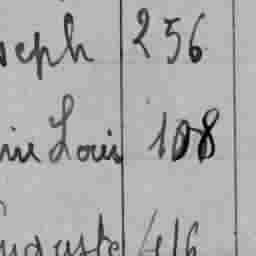 seph 256
rie Louis 108
uguste 416